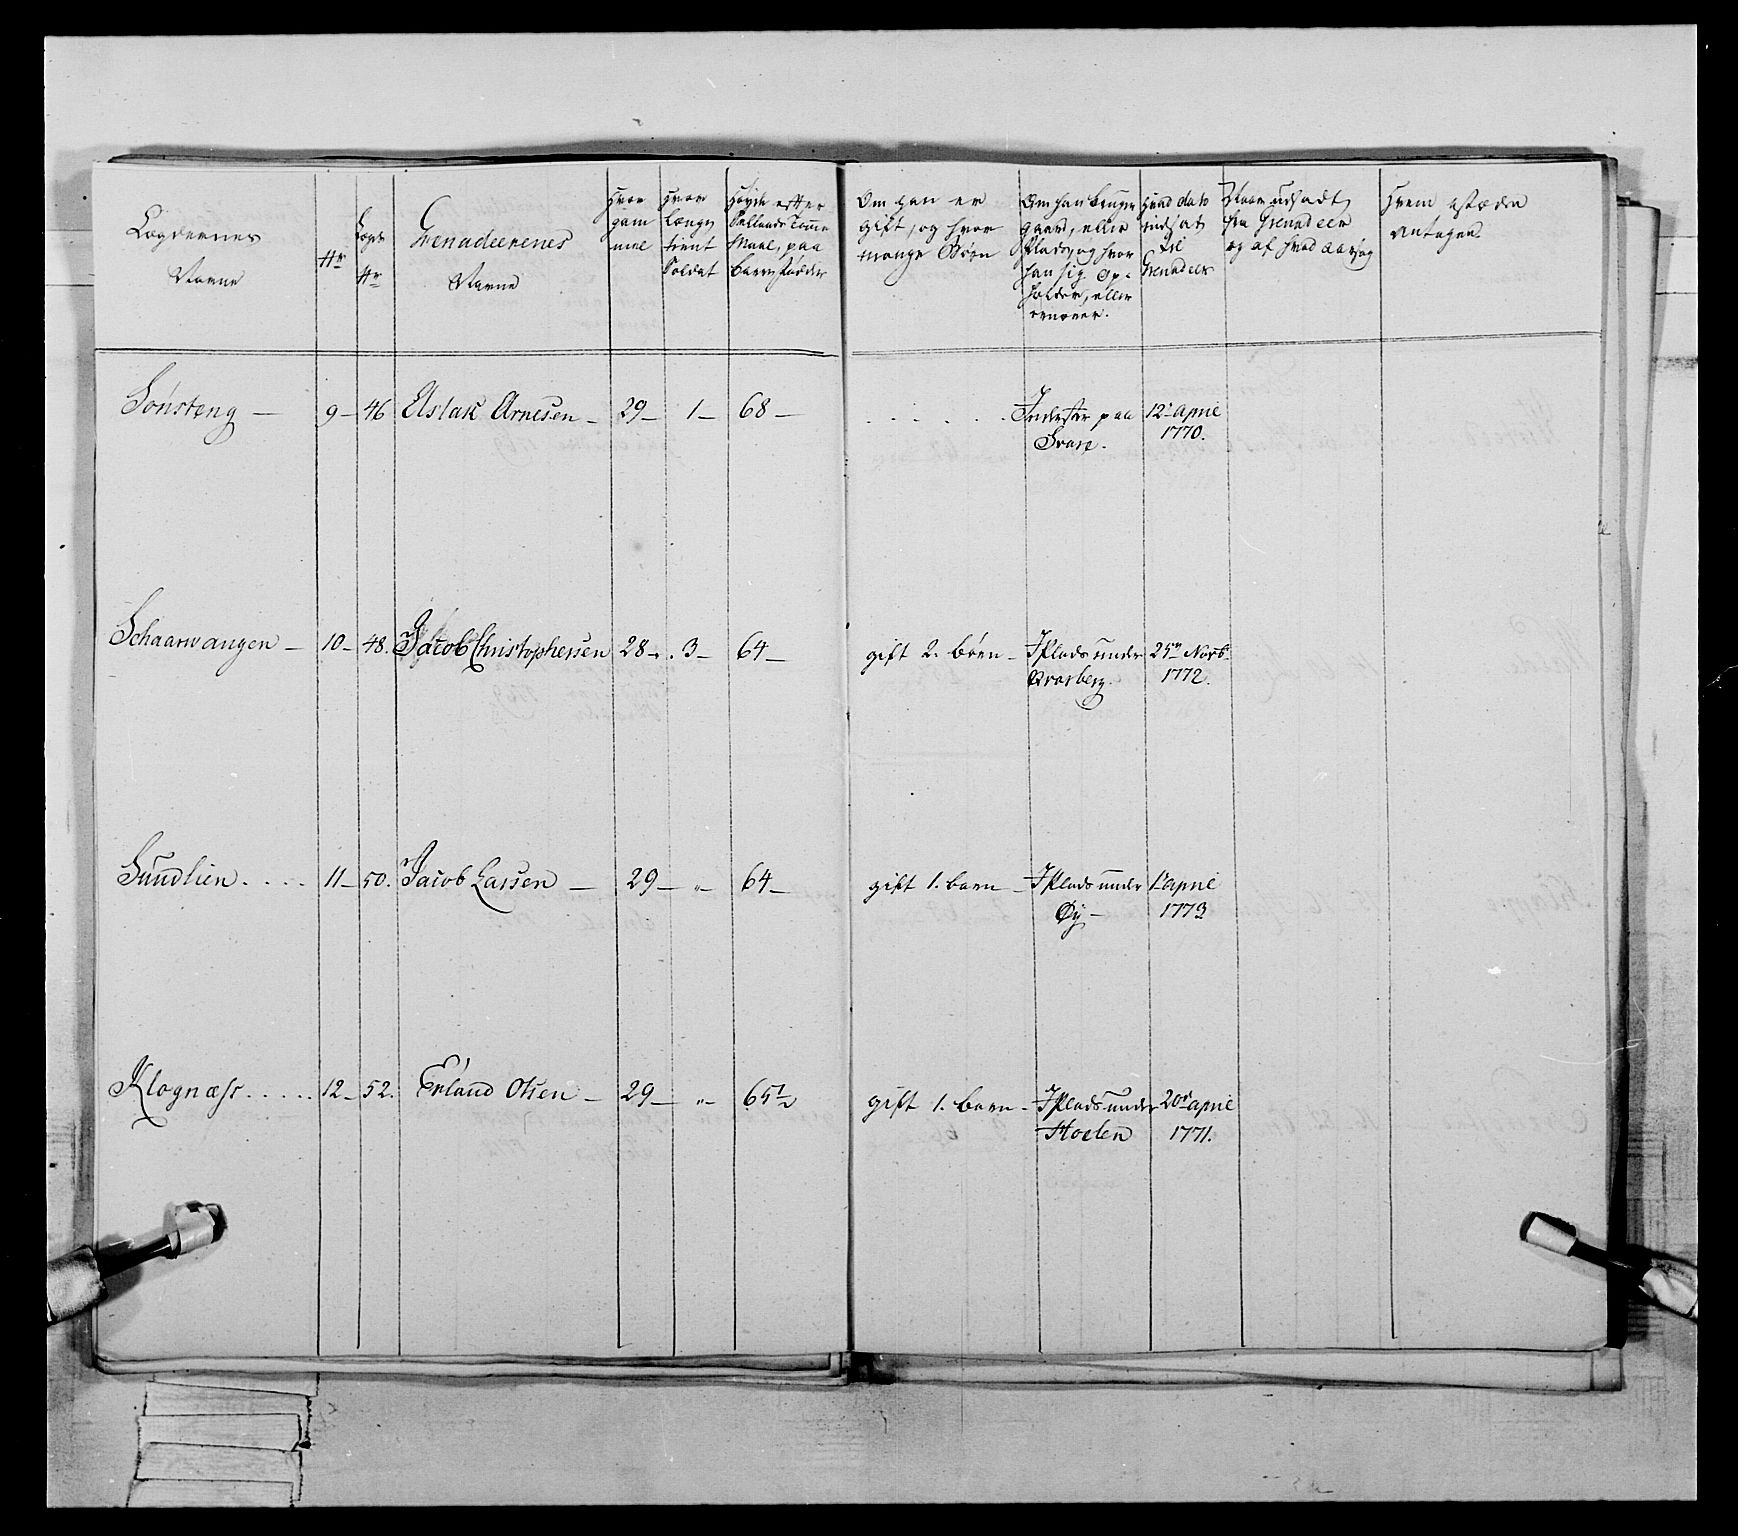 Lægdernes
Navne
Nr
Lægds
Nr
Grenadeerenes
Navne
Hvor
gam
mel
Hvor
længe
tient
Soldat
Høyde efter
Sællands Tomme
Maal, paa
barre fødder
Om han er
gift, og hvor
mange Børn
Om han bruger
gaard, eller
Plads, og hvor
han sig op-
holder, eller
ernærer.
Hvad dato
indsat
til
Grenadeer
Naar udsadt
fra Grenadeer
og af hvad aarsag
Hvem i stæden
antagen
Sønsteng — 9 — 46 Aslak Arnesen — 29 — 1 — 68 — . . . . . Inderster paa 12te april
Svare. 1770.
Schaarwangen — 10 — 48. Jacob Christophersen 28 — . 3 — 64 — gift 2. børn — I Plads under 25de Novb.
1772.
Sundlien . . . . 11 — 50. Jacob Larsen — 29 — „ — 64 — gift 1. barn — I Plads under 1te april
Øy — 1773
Klognæss . . . . . 12 — 52. Erland Olsen — 29 — „ — 65½ gift 1. barn — I Plads under 20de april
Hoelen 1771.